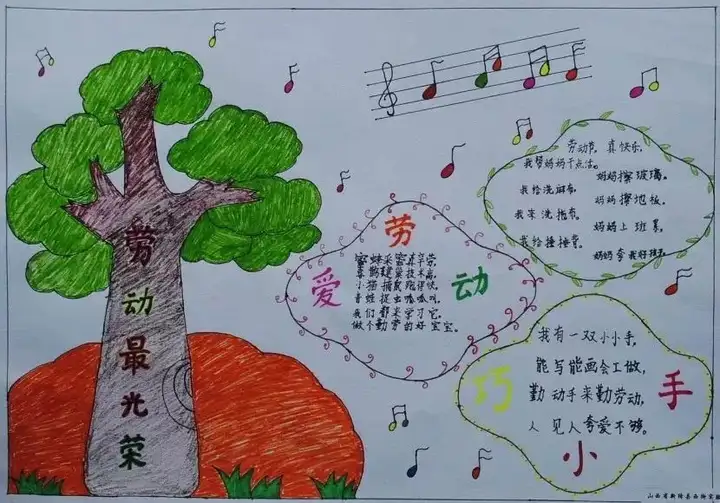 劳动最光荣
爱劳动
蜜蜂采蜜真辛劳,
喜鹊建巢技术高,
小猫捕鼠跑得快,
青蛙捉虫呱呱叫,
我们都来学习它,
做个勤劳的好宝宝。
劳动节,真快乐,
我帮妈妈干点活。
妈妈擦玻璃。
我给洗麻布。
妈妈擦地板。
我来洗拖布。
妈妈上班累。
我给捶捶背。
妈妈夸我好孩子。
巧小手
我有一双小小手,
能与能画会工做,
勤动手来勤劳动,
人见人夸爱不够。
山西省新绛县西街